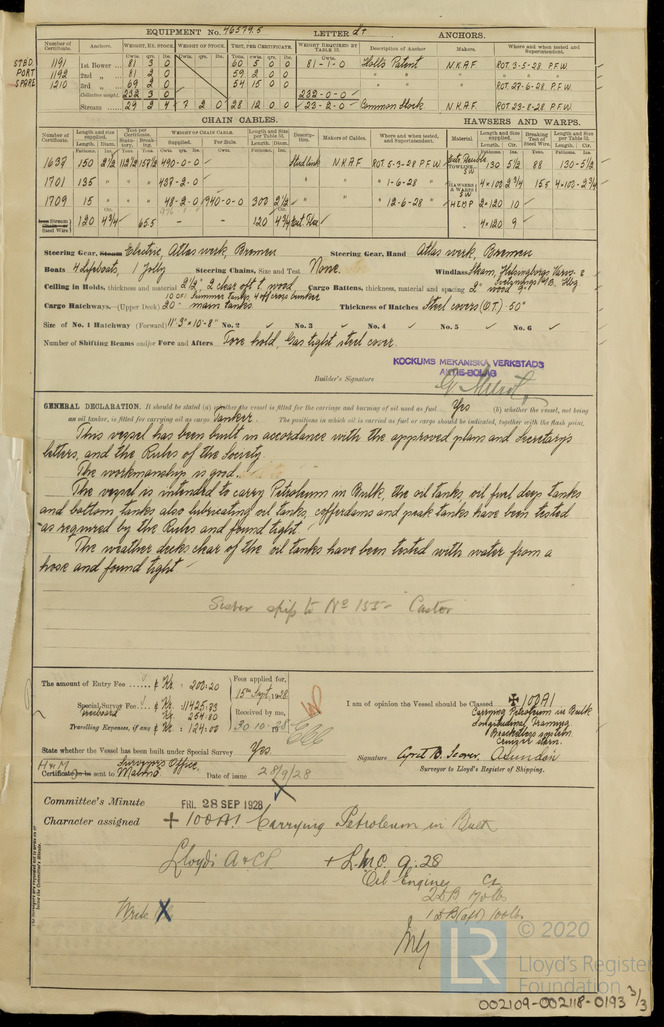 EQUIPMENT No. 46379.5 LETTER d+ ANCHORS.
Number of Certificate. Anchors. WEIGHT, EX. STOCK WEIGHT OF STOCK. TEST, PER CERTIFICATE. WEIGHT REQUIRED BY TABLE 31. Description of Anchor Makers. Where and when tested and Superintendent.
STBD 1191 1st Bower 81 3 0 60 5 0 0 81-1-0 Halls Patent N.K.A.F. ROT. 3-5-28 P.F.W.
PORT 1192 2nd 81 2 0 59 2 0 0 " " "
SPARE 1210 3rd 69 2 0 54 15 0 0 ROT. 27-6-28 P.F.W.
Collective weight 232 3 0 232-0-0
Stream 29 2 4 7 2 0 28 12 0 0 23-2-0 Common Stock N.K.A.F. ROT. 23-8-28 P.F.W.
CHAIN CABLES. HAWSERS AND WARPS.
Number of Certificate. Length and size supplied. Test per Certificate. WEIGHT OF CHAIN CABLE. Length and Size per Table 31. Description. Makers of Cables. Where and when tested, and Superintendent. Material. Length and size supplied. Breaking Test of Steel Wire. Length and Size per Table 31.
1637 150 2 1/2 112 1/2 157 1/2 490-0-0 Stud Link N.K.A.F. ROT 5-3-28 P.F.W. TOWLINE S.W. 130 5 1/2 88 130-5 1/2
1701 135 " " " 437-2-0 " " 1-6-28 " HAWSERS & WARPS S.W. 4×100 2 3/4 15.5 4×100-2 3/4
1709 15 " " " 48-2-0 940-0-0 300 2 1/2 " " 12-6-28 " HEMP 2×120 10
Steel Wire 120 4 3/4 65.5 120 4 3/4 4×120 9
Steering Gear, Steam Electric, Atlas werk, Bremen Steering Gear, Hand Atlas werk, Bremen
Boats 4 lifeboats, 1 Jolly Steering Chains, Size and Test None. Windlass Steam, Helsingborgs
Ceiling in Holds, thickness and material 2 1/2", 2" clear of t. wood Cargo Battens, thickness, material and spacing 2" wood 9"
10 off summer tanks, 4 off cross bunker
Cargo Hatchways.—(Upper Deck) 20 " main tanks Thickness of Hatches Steel covers (O.T.) .50"
Size of No. 1 Hatchway (Forward) 11'3"×10'-8" No. 2 No. 3 No. 4 No. 5 No. 6
Number of Shifting Beams and/or Fore and Afters Fore hold, Gas tight steel cover.
KOCKUMS MEKANISKA VERKSTADS
AKTIE-BOLAG
Builder's Signature
GENERAL DECLARATION. It should be stated (a) whether the vessel is fitted for the carriage and burning of oil used as fuel Yes (b) whether the vessel, not being
an oil tanker, is fitted for carrying oil as cargo Tanker. The positions in which oil is carried as fuel or cargo should be indicated, together with the flash point.
This vessel has been built in accordance with the approved plans and Secretary's
letters, and the Rules of the Society
The workmanship is good.
The vessel is intended to carry Petroleum in Bulk, the oil tanks, oil fuel deep tanks
and bottom tanks also lubricating oil tanks, cofferdams and peak tanks have been tested
as required by the Rules and found tight
The weather decks clear of the oil tanks have been tested with water from a
hose and found tight
Sister ship to No 155 - "Castor"
The amount of Entry Fee ...... Kr. : 200.20 Fees applied for,
15th Sept. 1928
Special Survey Fee Kr. 11425.83 Received by me,
Freeboard Kr. 254.80 30.10.28
Travelling Expenses, if any Kr. : 124.00
I am of opinion the Vessel should be Classed ✠ 100A1
Carrying Petroleum in Bulk
Longitudinal Framing
Bracketless system
Cruizer stern.
State whether the Vessel has been built under Special Survey Yes.
Signature
Surveyor to Lloyd's Register of Shipping.
H & M Surveyors Office,
Certificate to be sent to Malmö Date of issue 28/9/28
Committee's Minute FRI. 28 SEP 1928
Character assigned + 100A1 Carrying Petroleum in Bulk
Lloyds A & CP. + L.M.C. 9.28
Oil Engines
2 DB 170 lbs
1 DB (aft) 100 lbs
Write
X
LR © 2020
Lloyd's Register
Foundation
002109-002118-0193 3/3